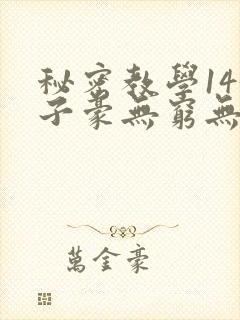 秘密教學14
子豪無窮無
萬金豪